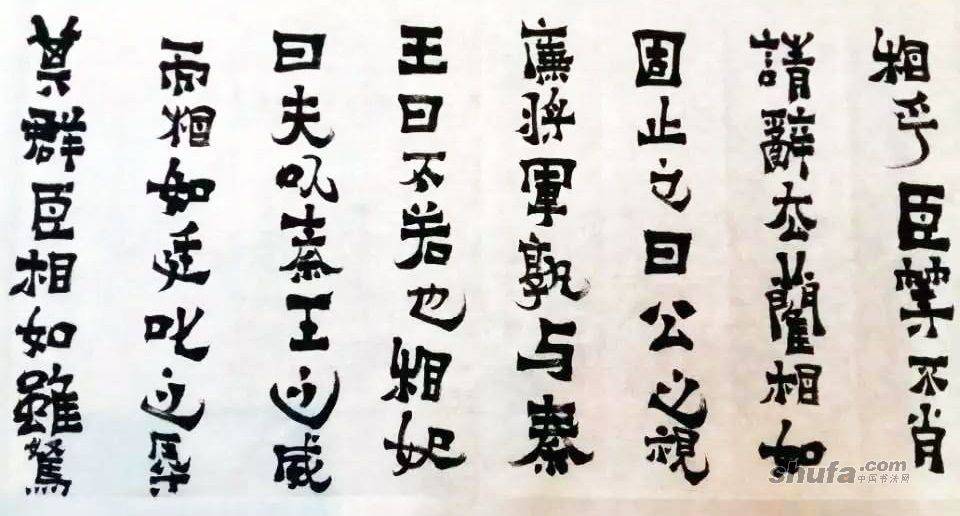 相乎臣等不肖
請辭去藺相如
固止之曰公之視
廉将軍孰与秦
王曰不若也相如
曰夫以秦王之威
而相如廷叱之辱
其群臣相如雖駑
shufa.com
中国书法网